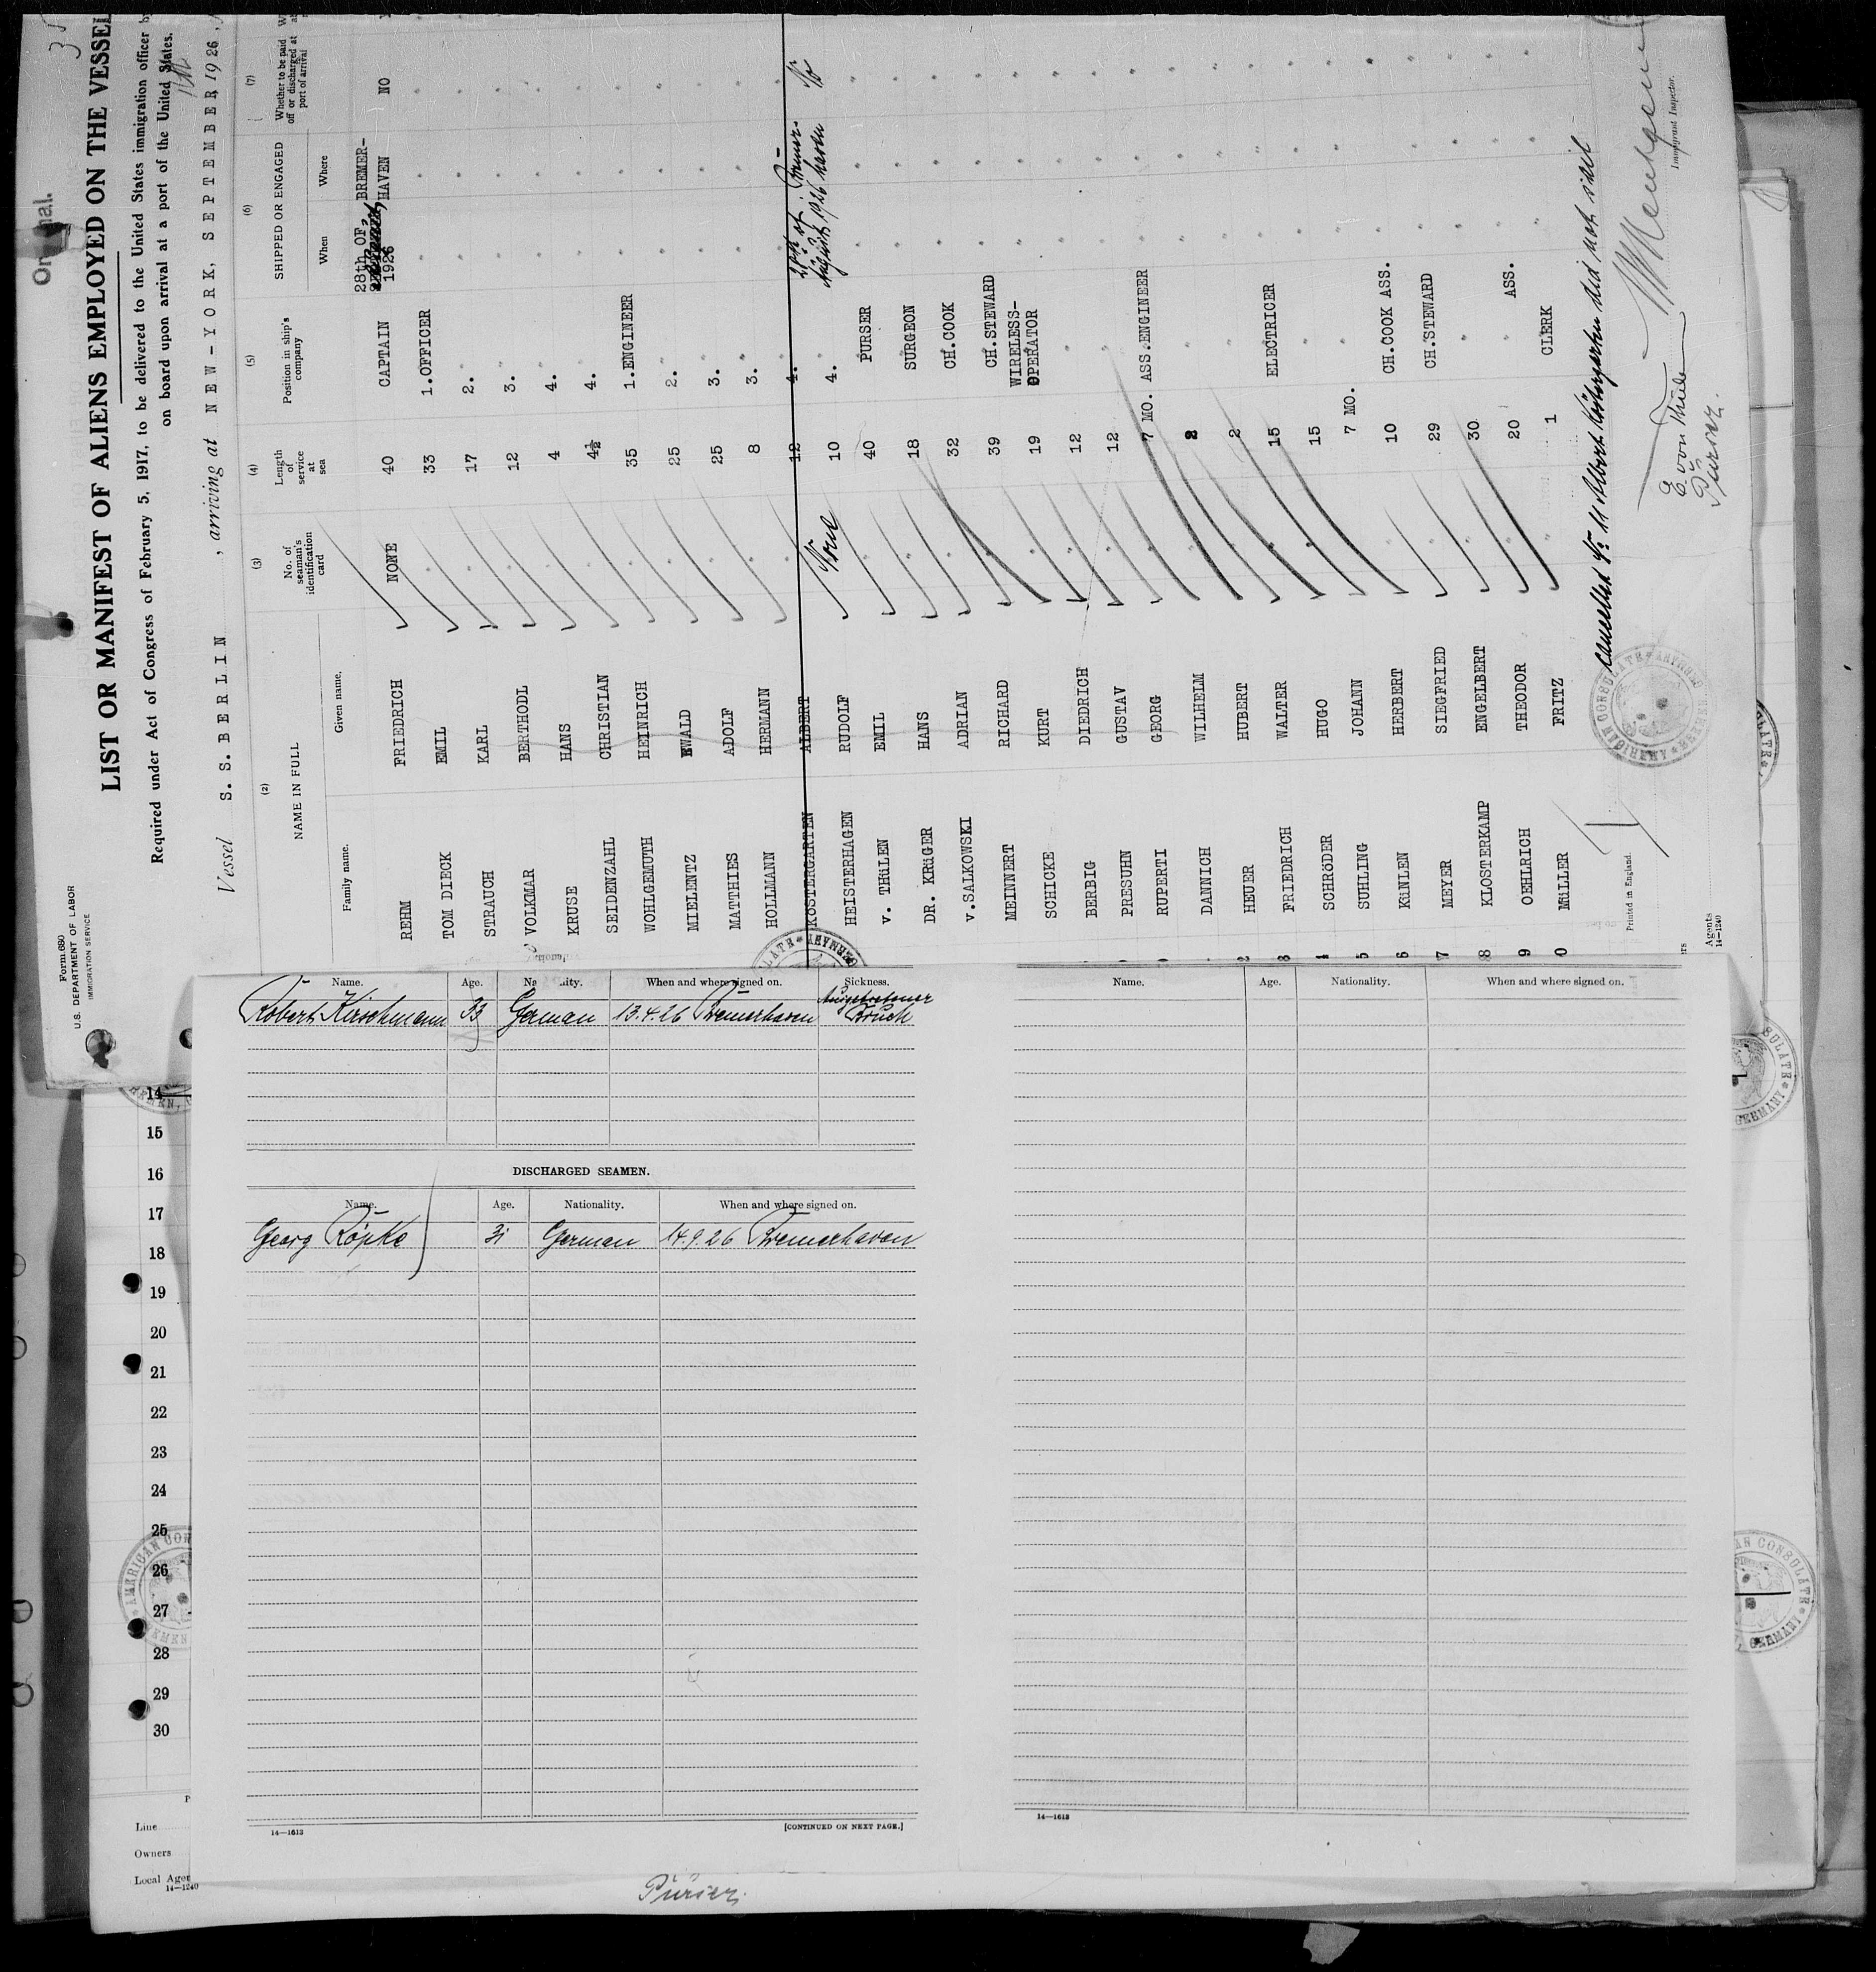 Original.
35
Form 680
U.S. DEPARTMENT OF LABOR
IMMIGRATION SERVICE
LIST OR MANIFEST OF ALIENS EMPLOYED ON THE VESSEL
Required under Act of Congress of February 5, 1917, to be delivered to the United States immigration officer
on board upon arrival at a port of the United States.
Vessel S. S. BERLIN, arriving at NEW-YORK, SEPTEMBER 1926,
(2) (3) (4) (5) (6) (7)
NAME IN FULL No. of seaman's identification card Length of service at sea Position in ship's company SHIPPED OR ENGAGED Whether to be paid off or discharged at port of arrival
Family name. Given name. When Where
REHM FRIEDRICH NONE 40 CAPTAIN 28th OF 1926 BREMER-HAVEN NO
TOM DIECK EMIL " 33 1.OFFICER " " "
STRAUCH KARL " 17 2. " " " "
VOLKMAR BERTHODL " 12 3. " " " "
KRUSE HANS " 4 4. " " " "
SEIDENZAHL CHRISTIAN " 4½ 4. " " " "
WOHLGEMUTH HEINRICH " 35 1.ENGINEER " " "
MIELENTZ EWALD " 25 2. " " " "
MATTHIES ADOLF " 25 3. " " " "
HOLLMANN HERMANN " 8 3. " " " "
KÖSTERGARTEN ALBERT " 12 4. " " " "
HEISTERHAGEN RUDOLF None 10 4. " 28th of August 1926 Bremerhaven No
v. THÜLEN EMIL " 40 PURSER " " "
DR. KRÜGER HANS " 18 SURGEON " " "
v.SALKOWSKI ADRIAN " 32 CH.COOK " " "
MEINNERT RICHARD " 39 CH.STEWARD " " "
SCHICKE KURT " 19 WIRELESS-OPERATOR " " "
BERBIG DIEDRICH " 12 " " " "
PRESUHN GUSTAV " 12 " " " "
RUPERTI GEORG " 7 MO. ASS.ENGINEER " " "
DANNICH WILHELM " 2 " " " "
HEUER HUBERT " 2 " " " "
FRIEDRICH WALTER " 15 ELECTRICER " " "
SCHRöDER HUGO " 15 " " " "
SUHLING JOHANN " 7 MO. " " " "
KüNLEN HERBERT " 10 CH.COOK ASS. " " "
MEYER SIEGFRIED " 29 CH.STEWARD " " "
KLOSTERKAMP ENGELBERT " 30 " " " "
OEHLRICH THEODOR " 20 " ASS. " " "
MüLLER FRITZ " 1 CLERK " " "
cancelled No 11 Albert Köstergarten did not sail
E von Thülen
Purser.
Immigrant Inspector.
Printed in England.
Agents
14—1240
AMERICAN CONSULATE
GERMANY
Name. Age. Nationality. When and where signed on. Sickness.
Robert Kirschmann 33 German 13.4.26 Bremerhaven Ausgetretener Bruch
DISCHARGED SEAMEN.
Name. Age. Nationality. When and where signed on.
Georg Röpke 31 German 14.9.26 Bremerhaven
14—1613
[CONTINUED ON NEXT PAGE.]
Name. Age. Nationality. When and where signed on.
14—1613
14
15
16
17
18
19
20
21
22
23
24
25
26
27
28
29
30
Line
Owners
Local Agen
14—1240
Purser.